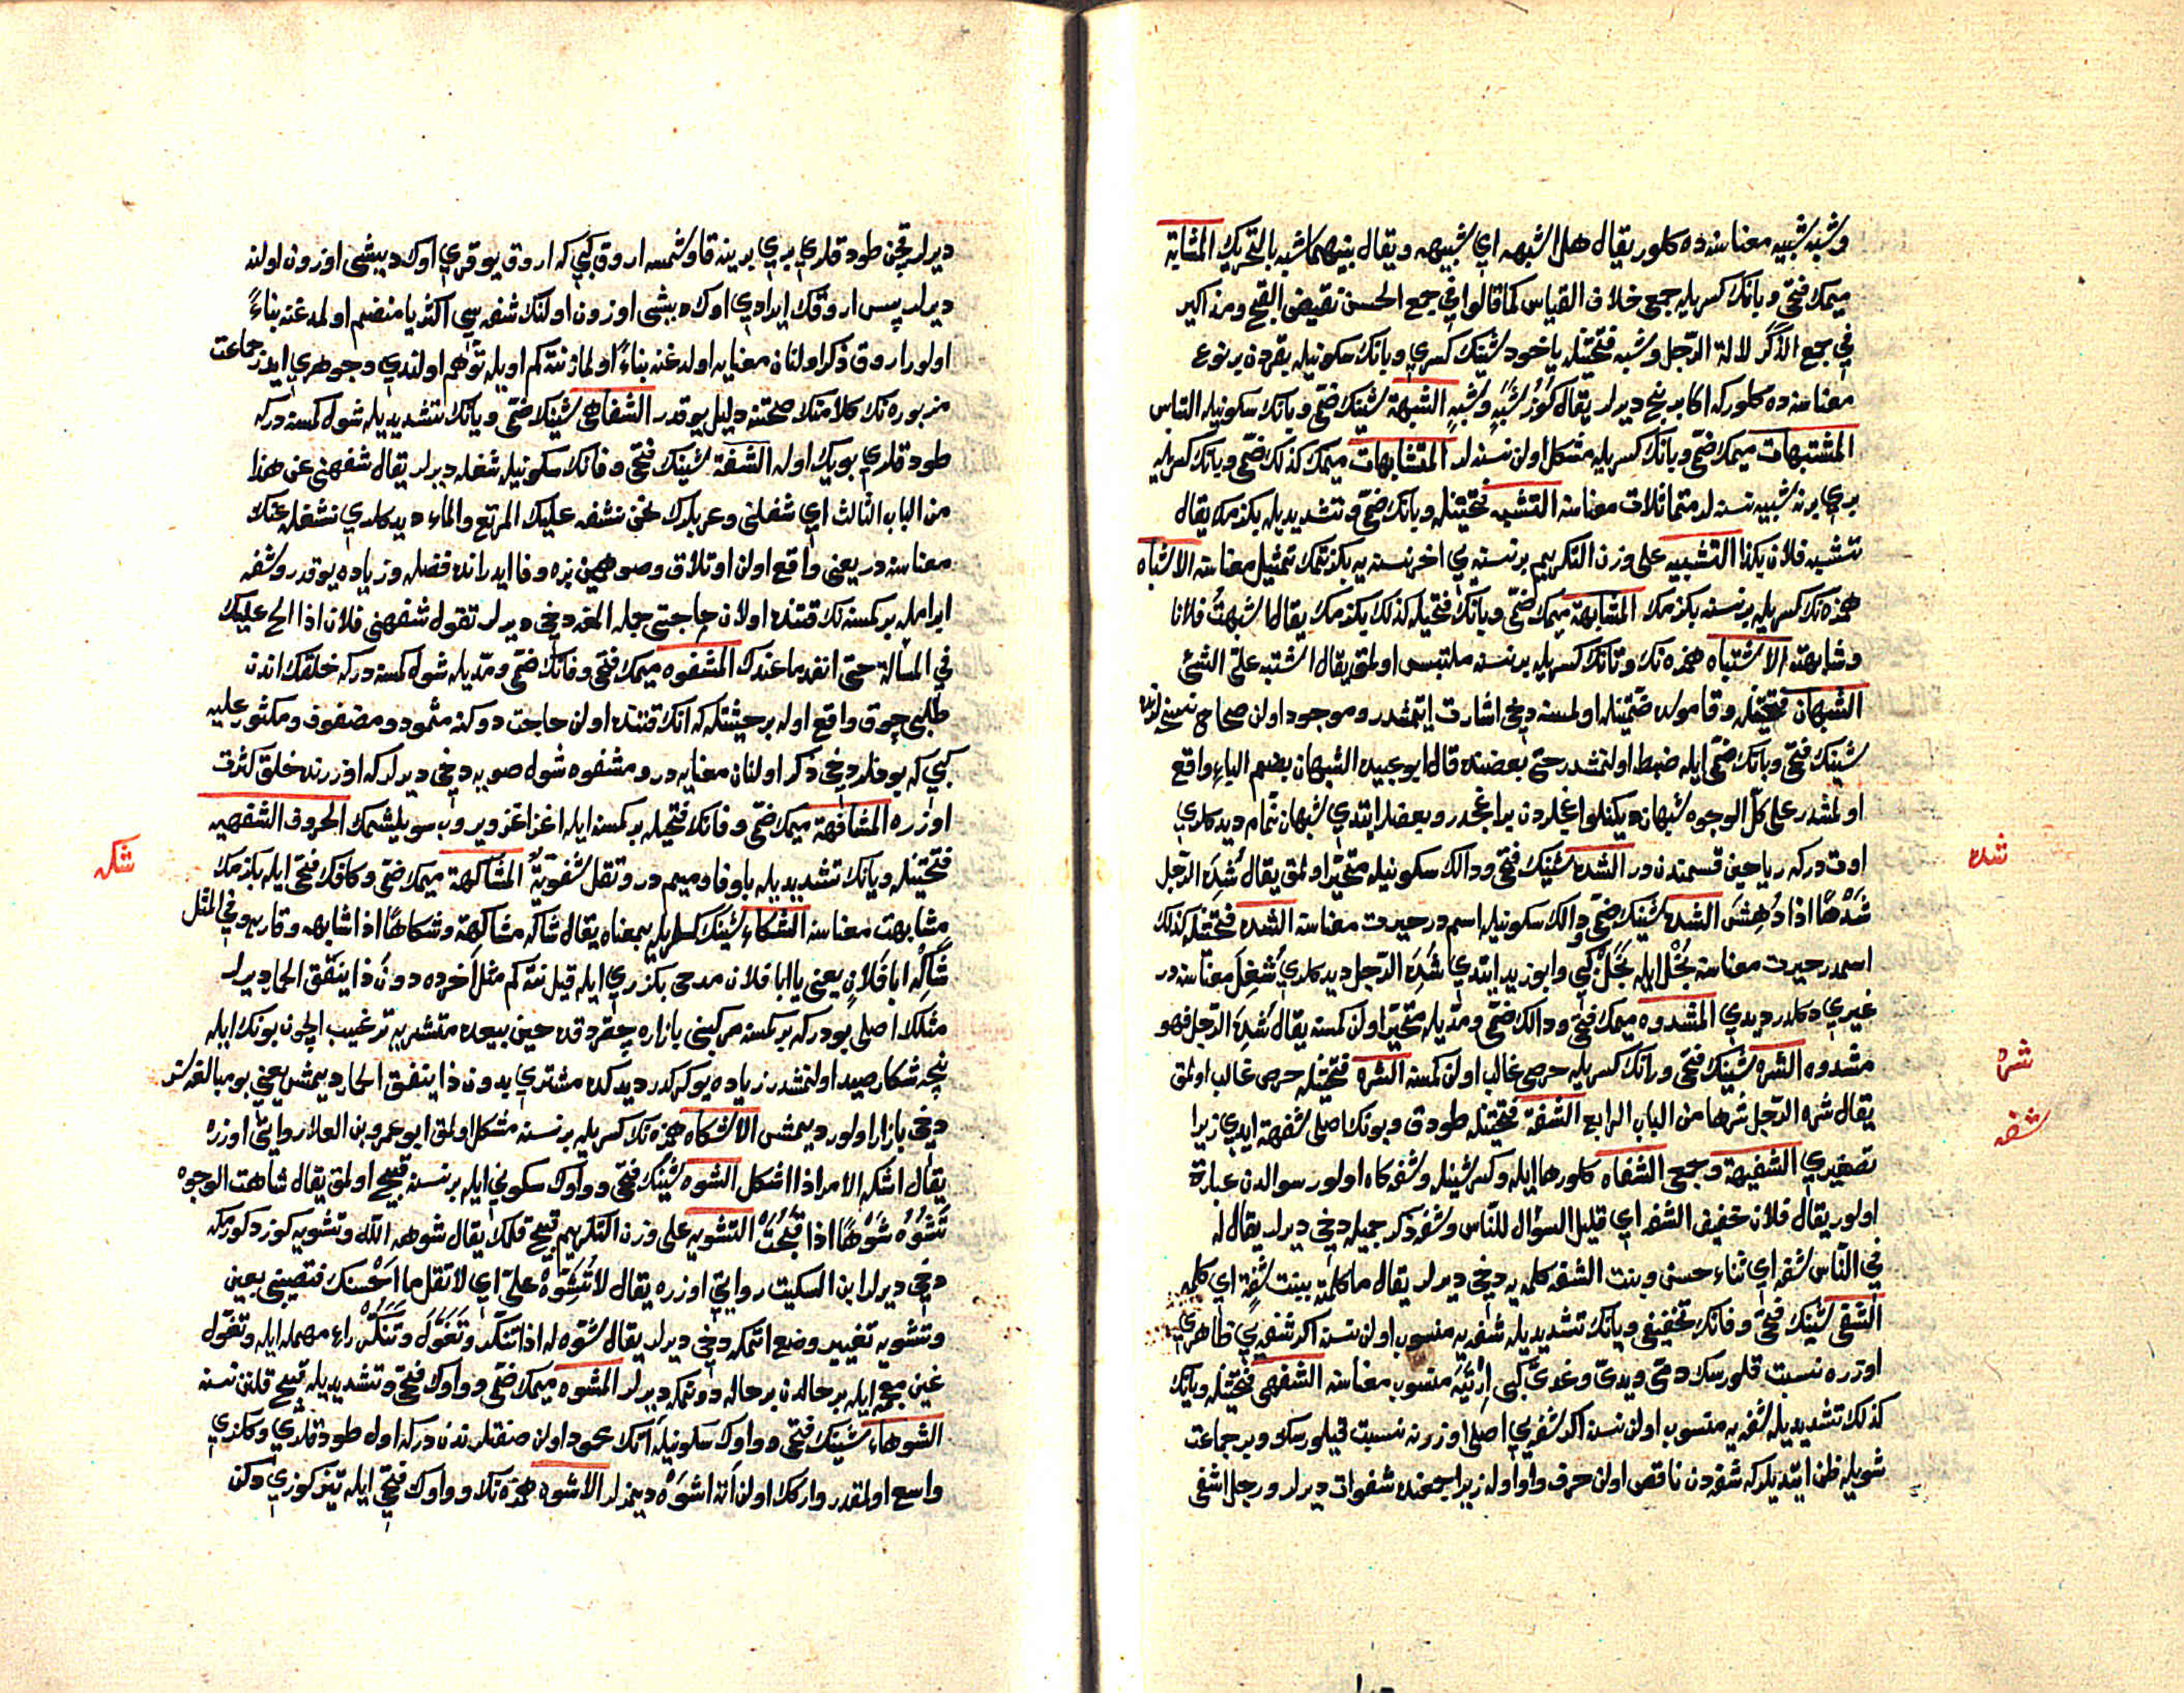 وشبه شبيه معناسنه ده كلور يقال هذا شبهه اي شبيهه ويقال بينهما شبه بالتحريك المشابه
ميمك فتحى وبانك كسريله جمعى خلاف القياس كما قالوا في جمع الحسن نقيض القبح ومذاكير
في جمع الذكر لالة الرجل وشبه فتحتيله ياخود شينك كسرى وبانك سكونيله بقردن بر نوع
معناسنه ده كلور كه اكا برنج ديرلر يقال كوز شبه وشبه الشبهة شينك ضمى وبانك سكونيله التباس
المشتبهات ميمك ضمى وبانك كسريله مشكل اولن نسنه لر المتشابهات ميمك كذلك ضمى وبانك كسريله
بري برنه شبيه نسنه لر متماثلات معناسنه التشبه فتحتيله وبانك ضمى وتشديديله بكزمك يقال
تشبه فلان بكذا التشبيه على وزن التكريم بر نسنه يي اخر نسنه يه بكزتمك تمثيل معناسنه الاشباه
همزه نك كسريله بر نسنه بكزمك المشابهة ميمك ضمى وبانك فتحيله كذلك بكزمك يقال اشبهت فلانا
وشابهته الاشتباه همزه نك وتانك كسريله بر نسنه ملتبس اولمق يقال اشتبه على الشئ
الشبهان فتحتيله وقاموسده ضمتيله اولمسنه دخى اشارت ايتمشدر وموجود اولن صحاح نسخه لرنده
شينك فتحى وبانك ضمى ايله ضبط اولنمشدر حتى بعضنده قال ابوعبيده الشبهان بضم الباء واقع
اولمشدر على كل الوجوه شبهان ديكنلو اغاجلردن بر اغجدر وبعضلر ايتدي شبهان ثمام ديدكلري
اوت دركه رياحين قسمندندر الشده شينك فتحى ودالك سكونيله متحير اولمق يقال شده الرجل
شدها اذا دهش الشده شينك ضمى ودالك سكونيله اسمدر حيرت معناسنه الشده فتحتيله كذلك
اسمدر حيرت معناسنه بخل ايله بخل كبي وابوزيد ايتدي شده الرجل ديدكلري شغل معناسنه در
غيري دكلدر ديدي المشدوه ميمك فتحى ودالك ضمى ومديله متحير اولن كمسنه يقال شده الرجل فهو
مشدوه الشره شينك فتحى ورانك كسريله حرصى غالب اولن كمسنه الشره فتحتيله حرص غالب اولمق
يقال شره الرجل شرها من الباب الرابع الشفة فتحتيله طودق وبونك اصلى شفهة ايدي زيرا
تصغيري الشفيهة وجمعى الشفاه كلور ها ايله وكسر شينله وشفه كاه اولور سوالدن عبارت
اولور يقال فلان خفيف الشفه اي قليل السؤال للناس وشفه ذكر جميله دخى ديرلر يقال له
في الناس شفه اي ثناء حسن وبنت الشفه كلمه يه دخى ديرلر يقال ما كلمته ببنت شفة اي كلمه
الشفى شينك فتحى وفانك تخفيفى ويانك تشديديله شفه يه منسوب اولن نسنه اكر شفه يي ظاهرى
اوزره نسبت قلورسك دمى ويدى وغدى كبى منسوب معناسنه الشفهى فتحتيله ويانك
كذلك تشديديله شفه يه منسوب اولن نسنه اكر شفه يي اصلى اوزرنه نسبت قيلورسك وبر جماعت
شويله ظن ايتديلر كه شفه دن ناقص اولن حرف واو اوله زيرا جمعنده شفوات ديرلر ورجل اشفى
شده
شره
شفه
ديرلر قچن طودقلري بري برينه قاوشمسه اروق كبي كه اروق يوقري اوك ديشى اوزون اولنه
ديرلر پس اروقك ايرادي اوك ديشى اوزون اولنك شفه سي اكثريا منضم اولمدغنه بناءً
اولور اروق ذكر اولنان معنايه اولدغنه بناءً اولماز نته كم اويله توهم اولندي وجوهري ايدر جماعت
مزبوره نك كلامنك صحتنه دليل يوقدر الشفاهى شينك ضمى ويانك تشديديله شول كمسنه دركه
طودقلري بويك اوله الشفه شينك فتحى وفانك سكونيله شغله ديرلر يقال شفهنى عن هذا
من الباب الثالث اي شغلنى وعربلرك نحن نشفه عليك المرتع والماء ديدكلري نشغله عنك
معناسنه در يعنى واقع اولن اوتلاق وصو همين بزه وفا ايدر اندن فضله وزياده يوقدر وشفه
ابرامله بر كمسنه نك قتنده اولان حاجتى جمله المغه دخى ديرلر تقول شفهنى فلان اذا الح عليك
في المسألة حتى انفد ما عندك المشفوه ميمك فتحى وفانك ضمى ومديله شول كمسنه دركه خلقك اندن
طلبى چوق واقع اوله بر حيثيتله كه انك قتنده اولن حاجت دوكنه مثمود ومضفوف ومكثور عليه
كبي كه بونلر دخى ذكر اولنان معنايه در ومشفوه شول صويه دخى ديرلر كه اوزرنده خلق كثرت
اوزره المشافهة ميمك ضمى وفانك فتحيله بر كمسنه ايله اغز اغزه ويروب سويلشمك الحروف الشفهيه
فتحتيله ويانك تشديديله با وفا وميم در وتقل شفوية المشاكهة ميمك ضمى وكافك فتحى ايله بكزمك
مشابهت معناسنه الشكاه شينك كسريله بمعناه يقال شاكه مشاكهة وشكاها اذا شابهه وقاربه وفي المثل
شاكه ابا فلان يعنى يا ابا فلان مدحى بكزري ايله قيل نته كم مثل آخرده دون ذا ينفق الحمار ديرلر
مثلك اصلى بودركه بر كمسنه مركبنى بازاره چقردقده حين بيعده مشتريه ترغيب ايچون بونك ايله
نيچه شكار صيد اولنمشدر زياده يوكركدر ديدكده مشتري بدون ذا ينفق الحمار ديمش يعنى بو مبالغه سز
دخى بازار اولور ديمش الاشكاه همزه نك كسريله بر نسنه مشكل اولمق ابوعمرو بن العلا روايتى اوزره
يقال اشكه الامر اذا اشكل الشوه شينك فتحى وواوك سكونى ايله بر نسنه قبيح اولمق يقال شاهت الوجوه
تشوه شوها اذا قبحت التشويه على وزن التكريم قبيح قلمك يقال شوهه الله وتشويه كوز دكورمكه
دخى ديرلر ابن السكيت روايتى اوزره يقال لا تشوه على اي لا تقل ما احسنك فتصيبنى بعين
وتشويه تغيير وضع اتمكه دخى ديرلر يقال شوه له اذا تنكر وتغول وتنكر راء مهمله ايله وتغول
غين معجمه ايله بر حالدن بر حاله دونمكه ديرلر المشوه ميمك ضمى وواوك فتحى وتشديديله قبيح قلنن نسنه
الشوهاء شينك فتحى وواوك سكونيله آتك محمود اولن صفتلرندن دركه اول طودقلري وكلزي
واسع اولمقدر واركك اولن آته اشوه ديمزلر الاشوه همزه نك وواوك فتحى ايله تيز كوزي دكن
شكه